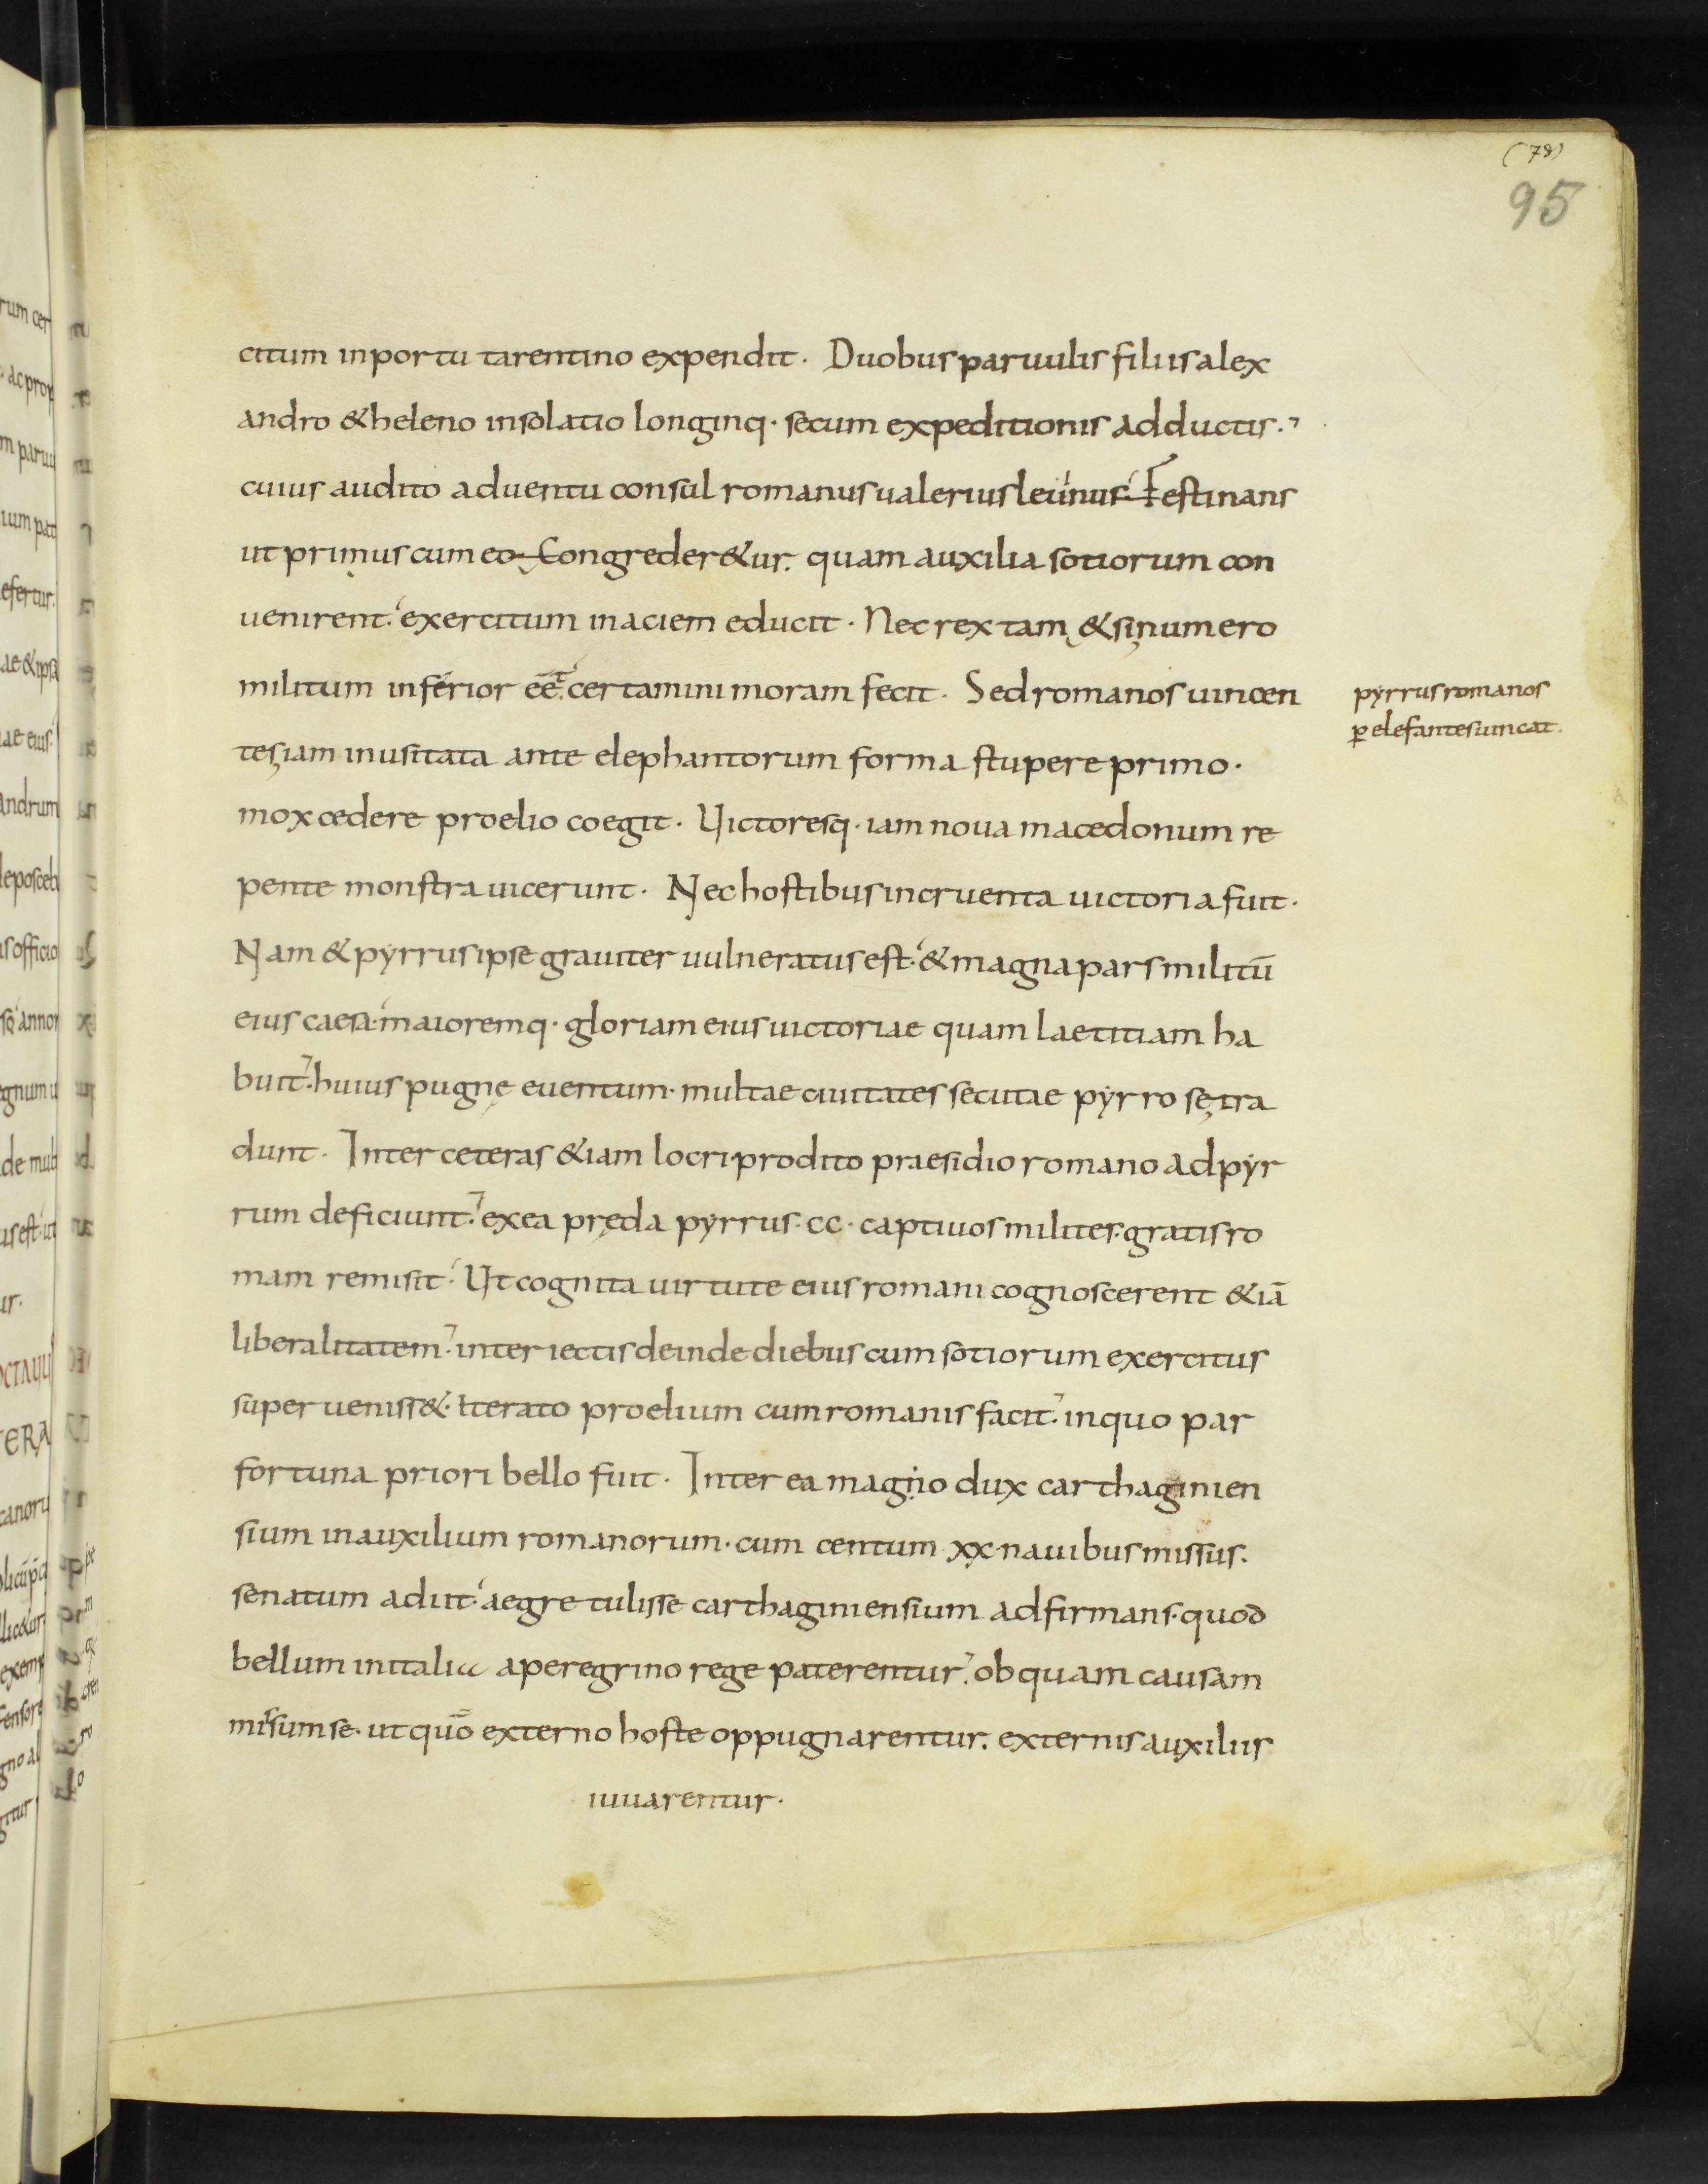 (78)
95
citum inportu tarentino expendit. Duobus paruulis filiis alex
andro & heleno insolatio longinq· secum expeditionis adductis.
cuius audito aduentu consul romanus ualerius leuinus. Festinans
ut primus cum eo Congreder&ur. quam auxilia sotiorum con
uenirent. exercitum in aciem educit. Nec rex tam & si numero
militum inferior eēt. certamini moram fecit. Sed romanos uincen
tes iam inusitata ante elephantorum forma stupere primo.
mox cedere proelio coegit. Uictoresq· iam noua macedonum re
pente monstra uicerunt. Nec hostibus incruenta uictoria fuit.
Nam & pyrrus ipse grauiter uulneratus est. & magna pars militū
eius caesa. maioremq· gloriam eius uictoriae quam laetitiam ha
buit. huius pugnę euentum. multae ciuitates secutae pyrro se tra
dunt. Inter ceteras &iam locri prodito praesidio romano ad pyr
rum deficiunt. ex ea pręda pyrrus ·cc· captiuos milites. gratis ro
mam remisit. Ut cognita uirtute eius romani cognoscerent &iā
liberalitatem. inter iectis deinde diebus cum sotiorum exercitus
super ueniss&. Iterato proelium cum romanis facit. in quo par
fortuna priori bello fuit. Inter ea magno dux carthaginien
sium in auxilium romanorum. cum centum xx nauibus missus.
senatum adiit. aegre tulisse carthaginiensium adfirmans. quod
bellum in italia a peregrino rege paterentur. ob quam causam
missum se. ut quō externo hoste oppugnarentur. externis auxiliis
iuuarentur.
pyrrus romanos
ꝑ elefantes uincat.